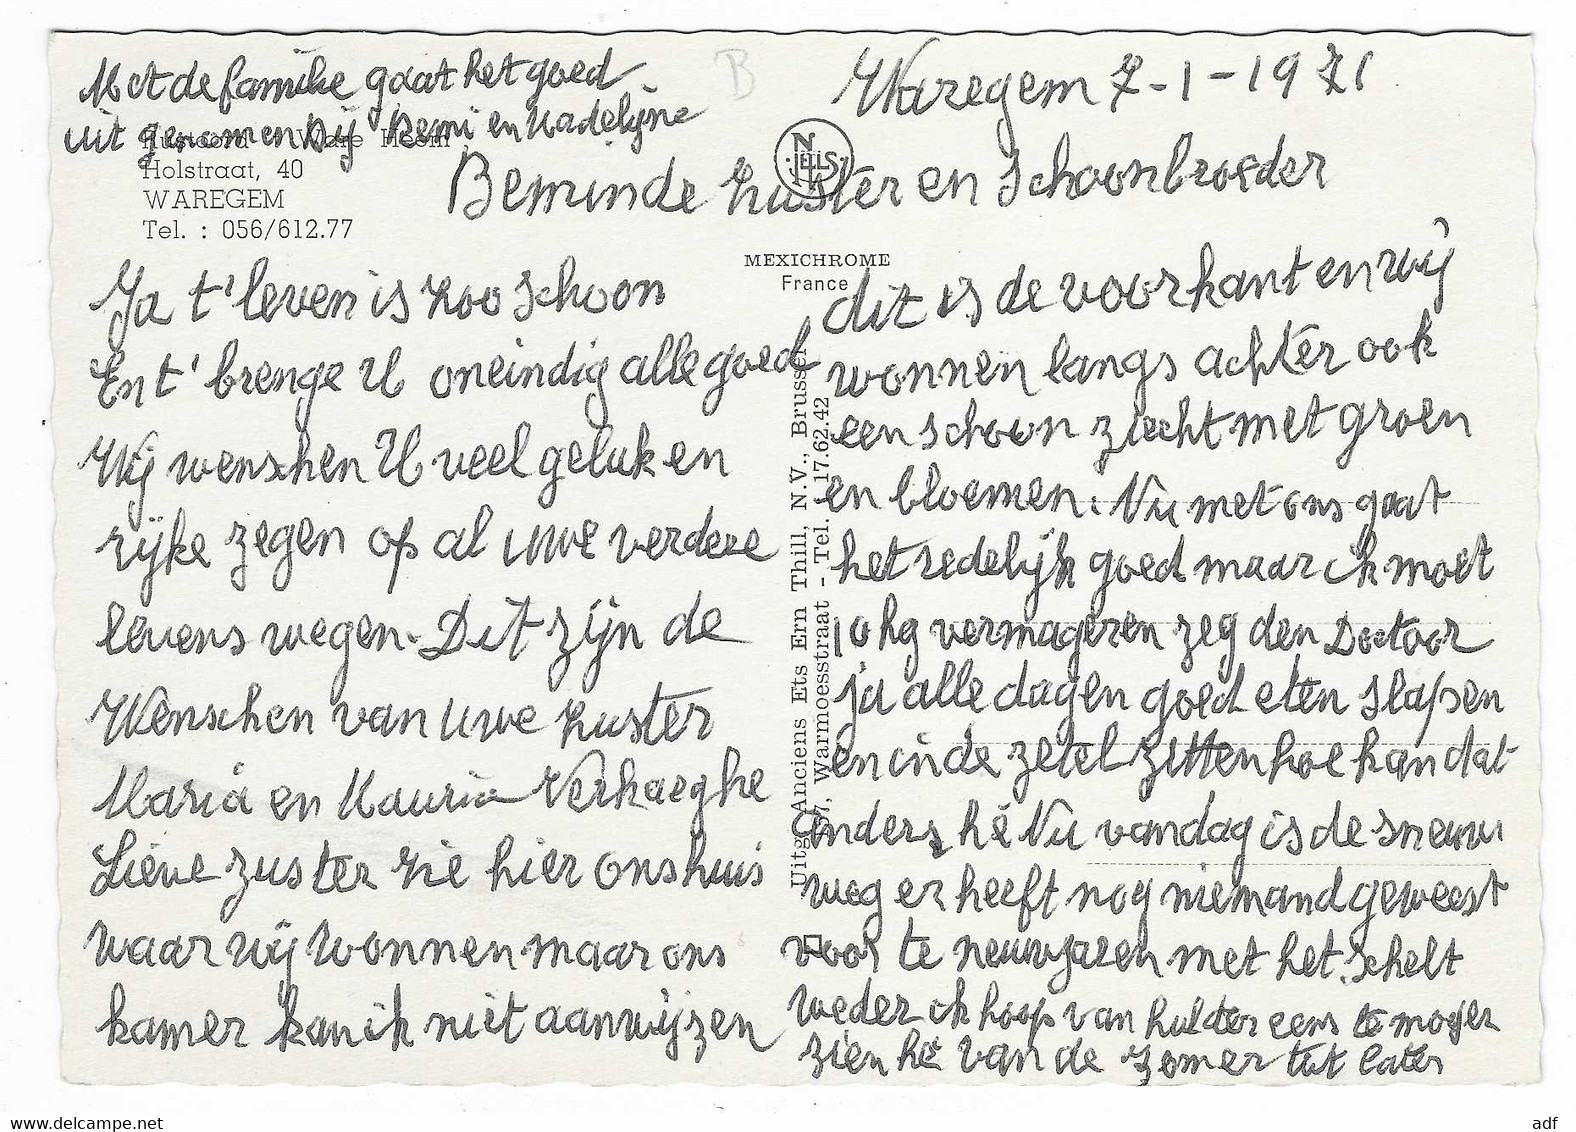 Met de familie gaat het goed
uit genomen bij Remi en Madelijne
B
Waregem 7-1-1971
Rustoord Ware Heem
Holstraat, 40
WAREGEM
Tel. : 056/612.77
NELS
Beminde zuster en schoonbroeder
MEXICHROME
France
Uitg. Anciens Ets Ern Thill, N.V., Brussel
Warmoesstraat - Tel. 17.62.42
Ja t'leven is zoo schoon
En t'brenge U oneindig alle goed
Wij wenschen U veel geluk en
rijke zegen op al uwe verdere
levens wegen. Dit zijn de
Wenschen van uwe zuster
Maria en Mauria Verhaeghe
Lieve zuster zie hier ons huis
waar wij wonnen maar ons
kamer kan ik niet aanwijzen
dit is de voorkant en wij
wonnen langs achter ook
een schoon ziecht met groen
en bloemen. Nu met ons gaat
het redelijk goed maar ik moet
10 kg vermageren zeg den Doctoor
ja alle dagen goed eten slapen
en in de zetel zitten hoe kan dat
anders hé Nu vandag is de sneuw
weg er heeft nog niemand geweest
voor te neuwjaren met het schelt
weder ik hoop van hulder eens te mogen
zien hé van de zomer tot later
adf
delcampe.net